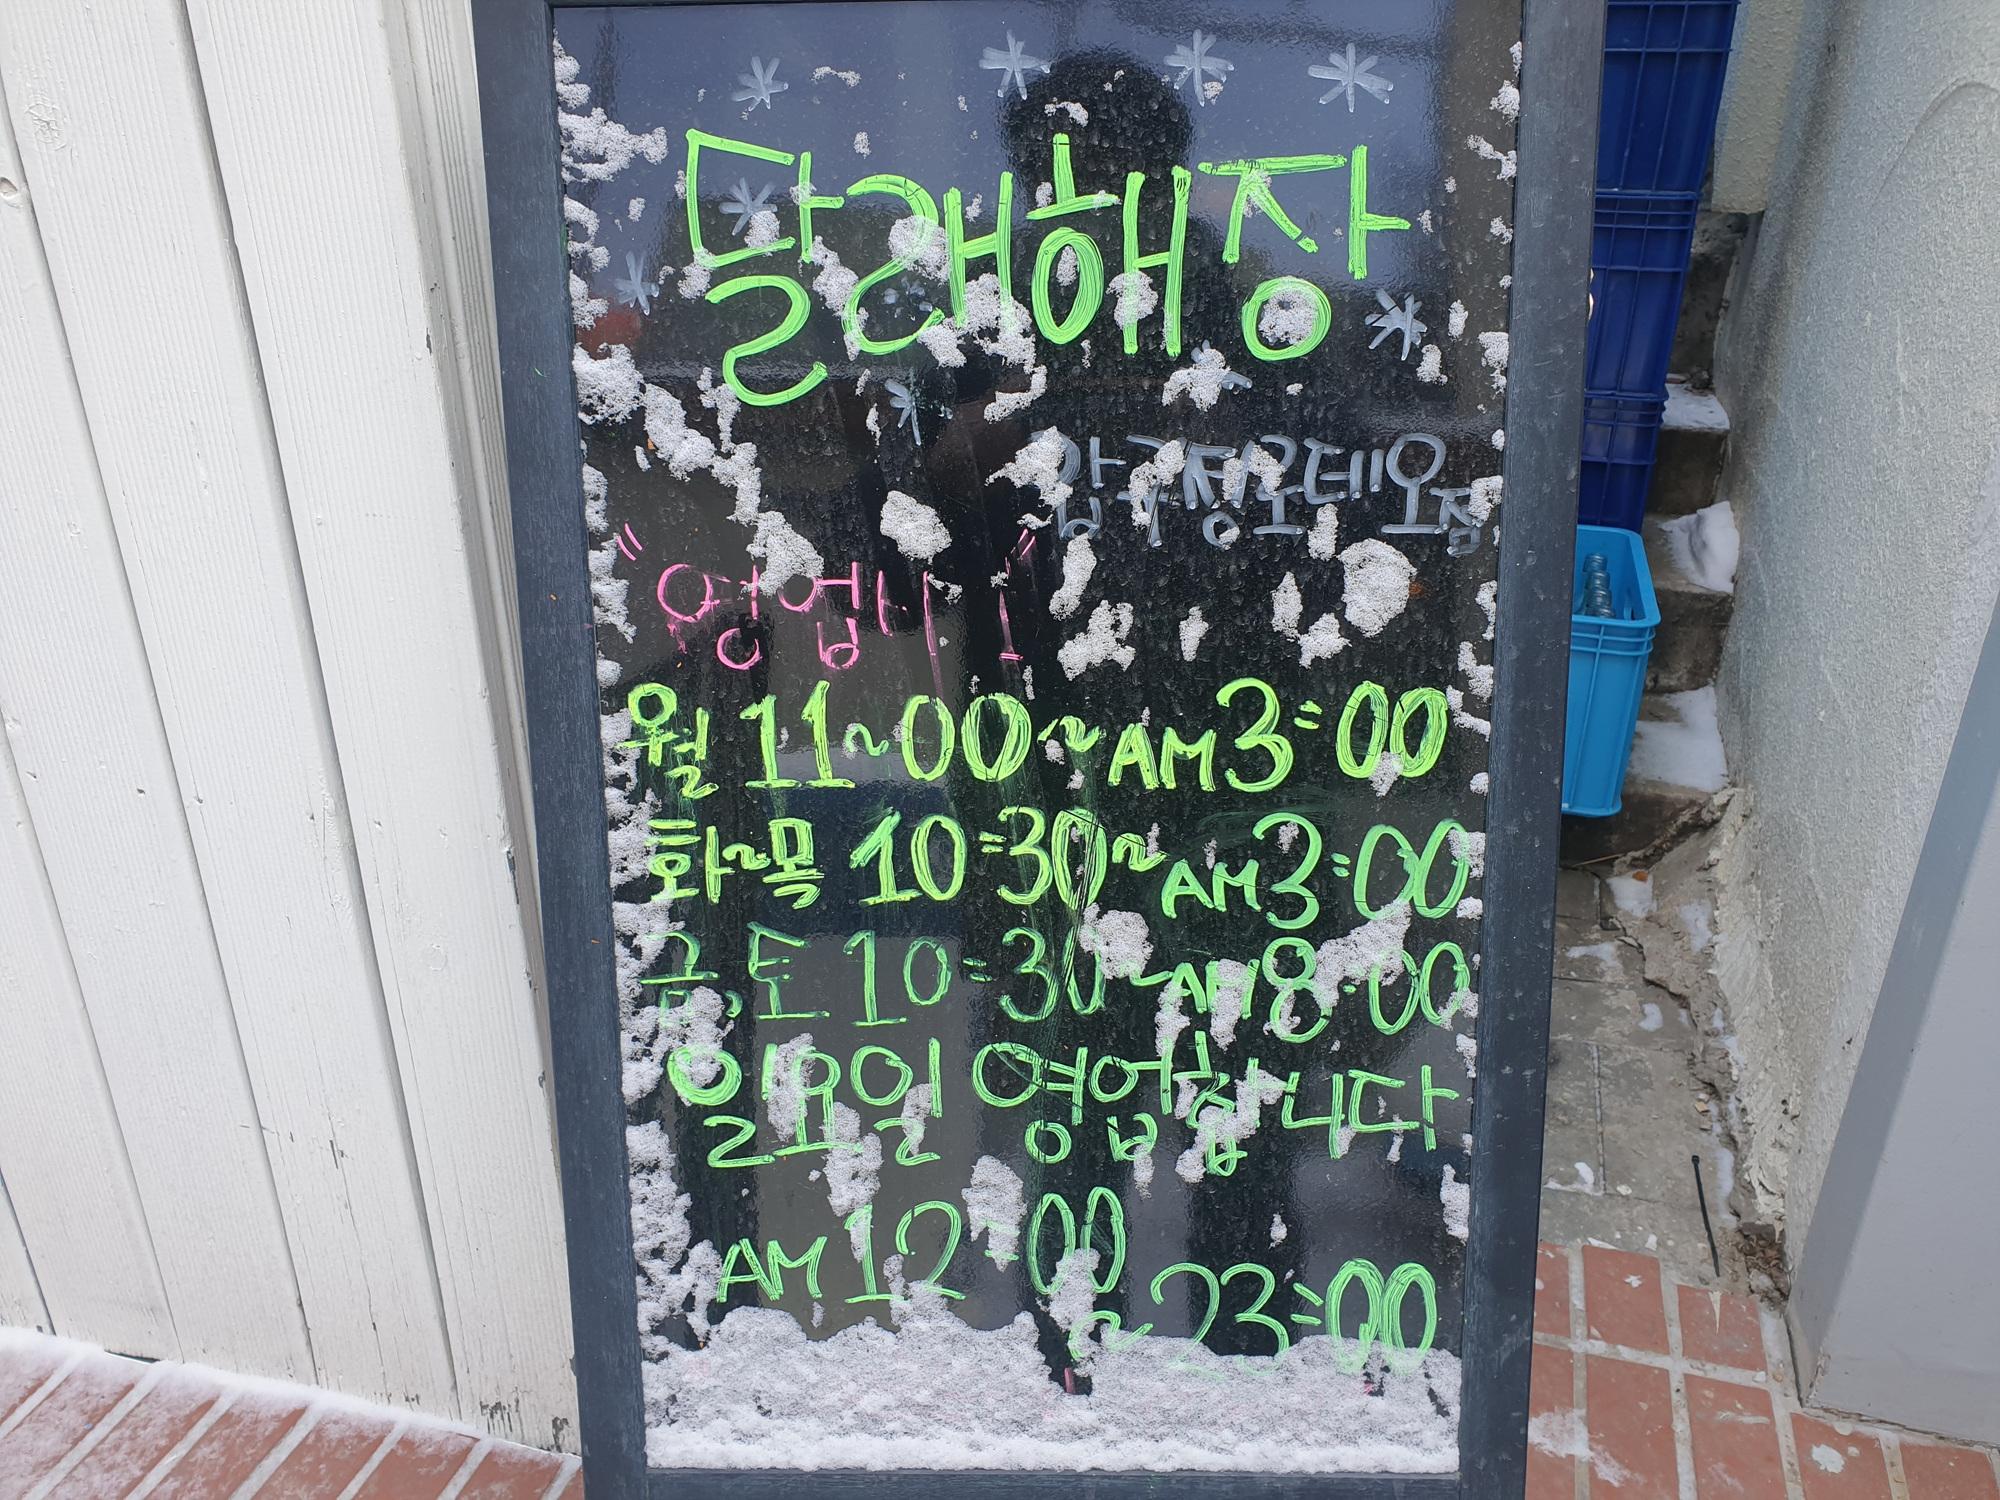 달래해장
압구정로데오점
"영업시
월 11~00~AM3:00
화~목 10:30~AM3:00
금,토 10:30~AM8:00
일요일 영업합니다
AM12:00
~23:00